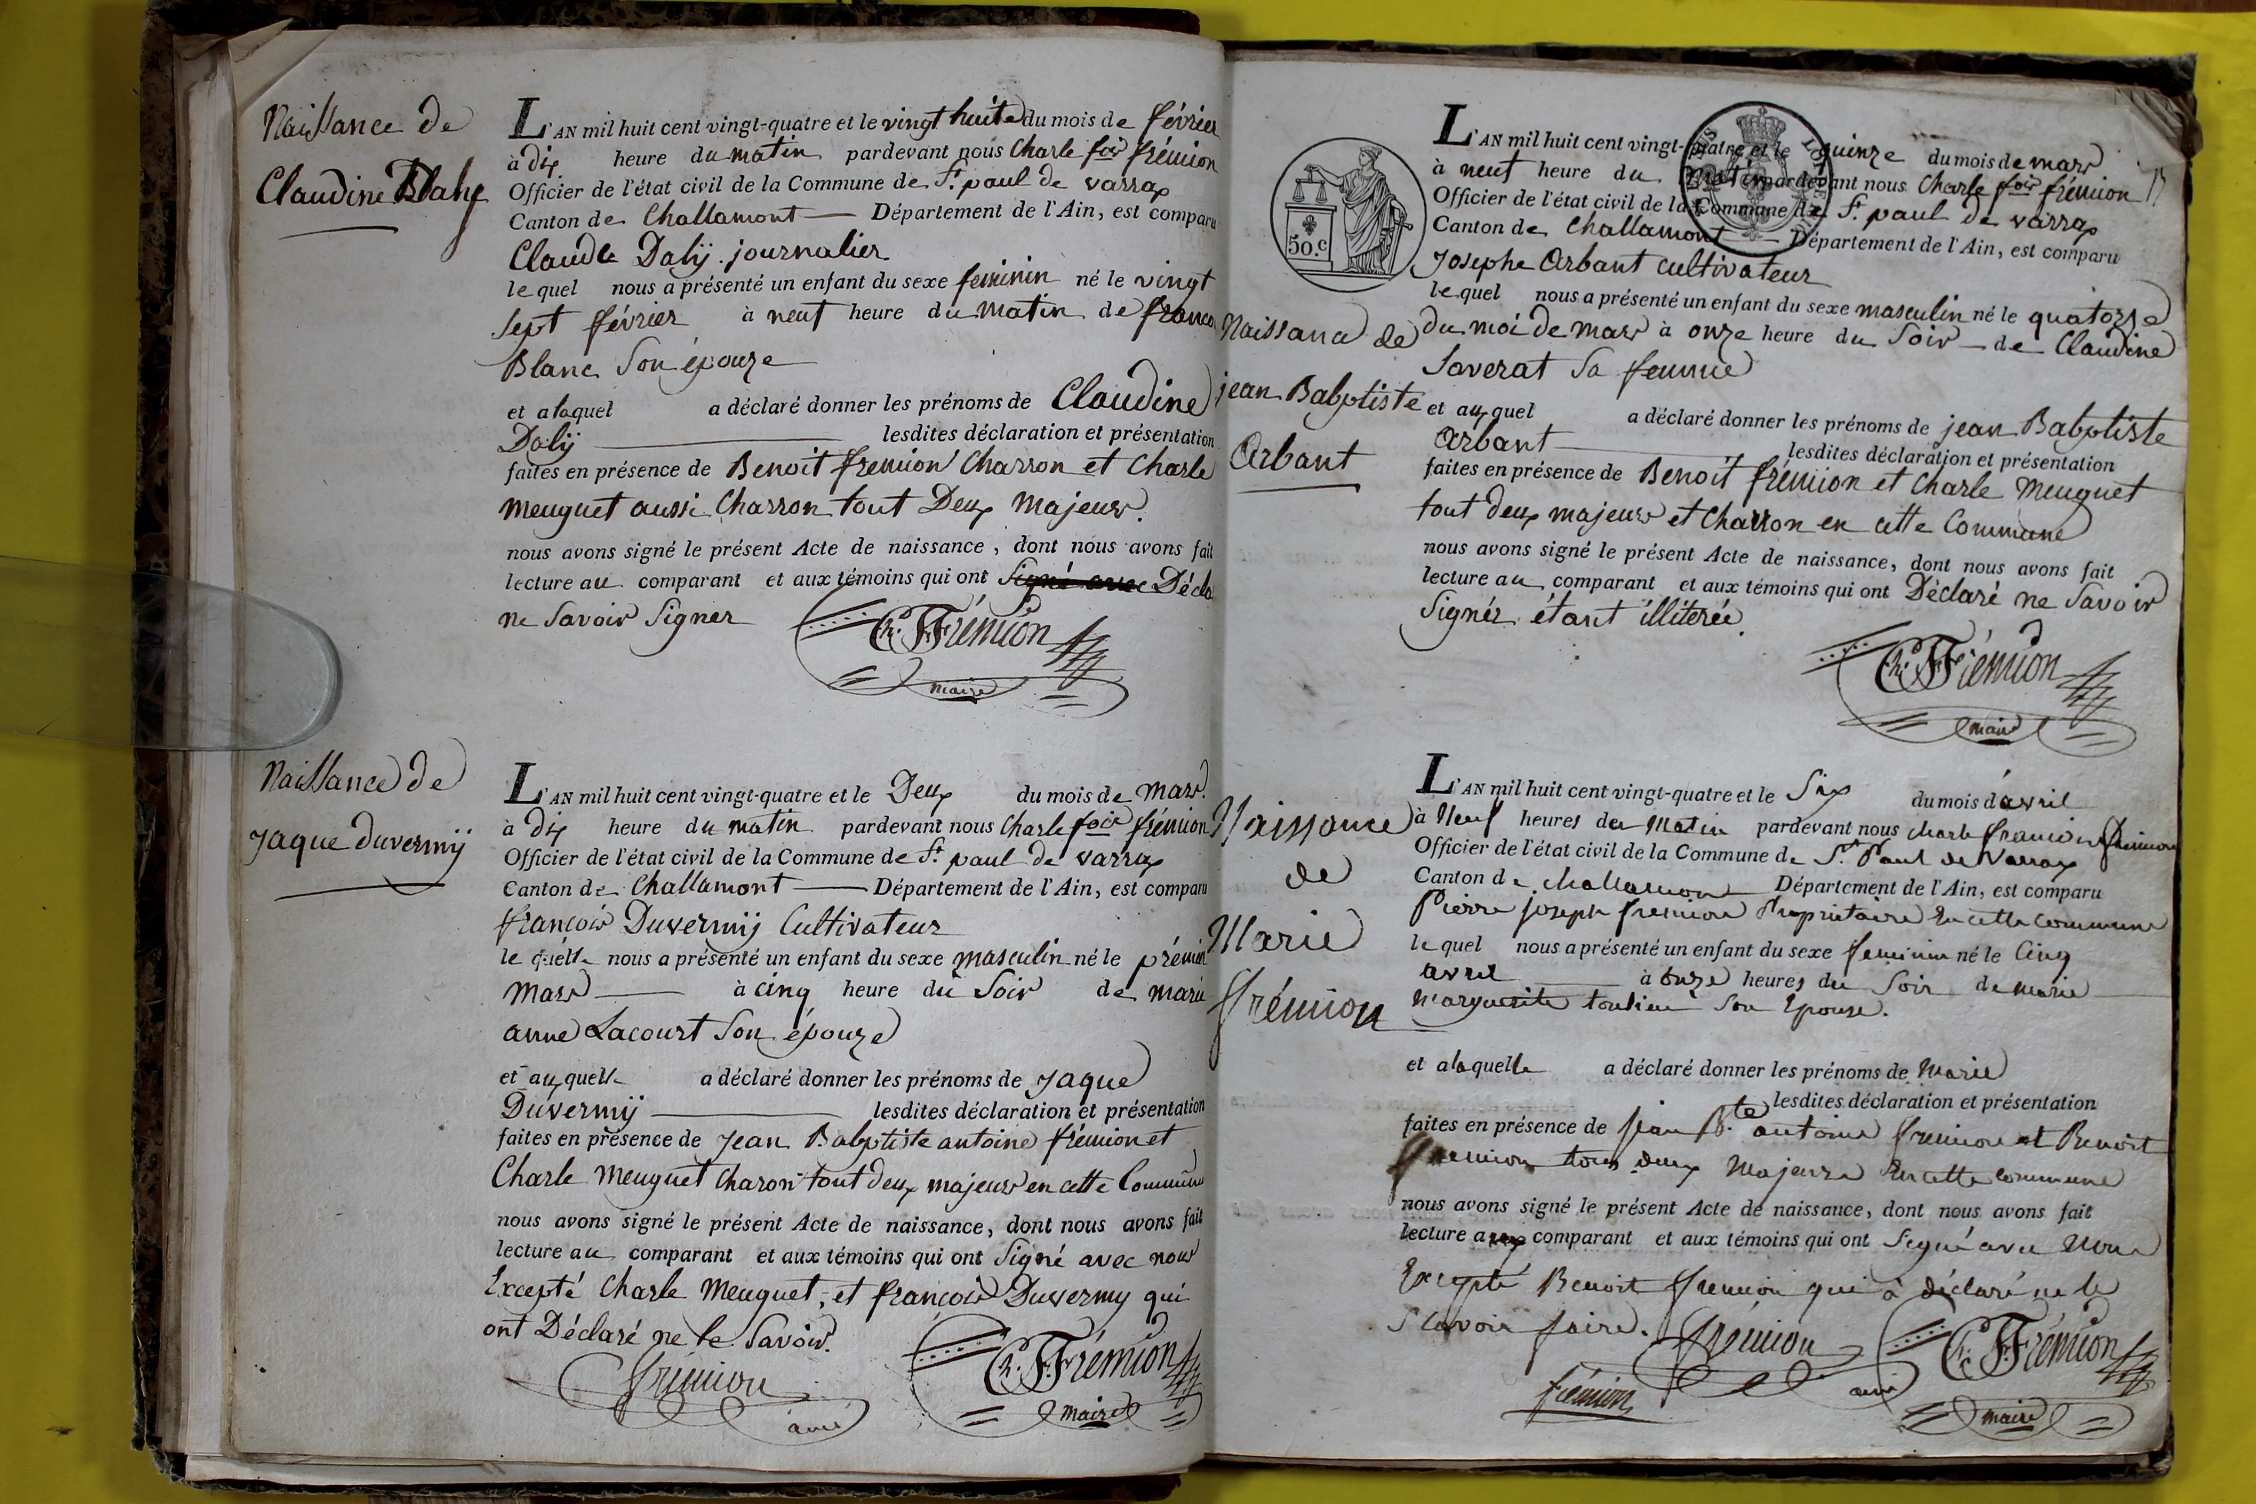 Naissance de
Claudine Daly
L'AN mil huit cent vingt-quatre et le vingt huite du mois de février
à dix heure du matin pardevant nous Charle fois frémion
Officier de l'état civil de la Commune de St. paul de varrax
Canton de Challamont Département de l'Ain, est comparu
Claude Dalÿ journalier
le quel nous a présenté un enfant du sexe feminin né le vingt
sept février à neuf heure du matin de
Blanc Son épouze
et a laquel a déclaré donner les prénoms de Claudine
Dalÿ lesdites déclaration et présentation
faites en présence de Benoit fremion Charron et Charle
Meuguet aussi Charron tout Deux Majeurs.
nous avons signé le présent Acte de naissance, dont nous avons fait
lecture au comparant et aux témoins qui ont Signé avec Décla
ne Savoir Signer
Ch. F. Frémion
maire
Naissance de
Jaque Duvermÿ
L'AN mil huit cent vingt-quatre et le Deux du mois de Mars.
à dix heure du matin pardevant nous Charle fois frémion
Officier de l'état civil de la Commune de St. paul de varrax
Canton de Challamont Département de l'Ain, est comparu
françois Duvermÿ Cultivateur
le quelle nous a présenté un enfant du sexe masculin né le prémier
Mars à cinq heure du Soir de marie
anne Lacourt Son épouze
et aux quelle a déclaré donner les prénoms de Jaque
Duvermÿ lesdites déclaration et présentation
faites en présence de Jean Babptiste antoine frémion et
Charle Meuguet Charon tout deux majeurs en cette Commune
nous avons signé le présent Acte de naissance, dont nous avons fait
lecture au comparant et aux témoins qui ont Signé avec nous
Excepté Charle Meuguet, et françois Duvermy qui
ont Déclaré ne le Savoir.
frémion
ainé
Ch. F. Frémion
Maire
50.c
13
Naissance de
jean Babptiste
Arbant
L'AN mil huit cent vingt-quatre et le quinze du mois de mars
à neuf heure du Matin pardevant nous Charle fois frémion
Officier de l'état civil de la Commune de St. paul de varrax
Canton de Challamont Département de l'Ain, est comparu
Josephe Arbant cultivateur
le quel nous a présenté un enfant du sexe masculin né le quatorze
du moi de mars à onze heure du Soir de Claudine
Saverat Sa femme
et aux quel a déclaré donner les prénoms de jean Babptiste
Arbant lesdites déclaration et présentation
faites en présence de Benoit frémion et Charle Meuguet
tout deux majeurs et Charron en cette Commune
nous avons signé le présent Acte de naissance, dont nous avons fait
lecture au comparant et aux témoins qui ont Déclaré ne Savoir
Signér étant illiterée.
Ch. F. Frémion
maire
Naissance
de
Marie
frémion
L'AN mil huit cent vingt-quatre et le Six du mois d'avril
à Neuf heures du Matin pardevant nous charle francois fremion
Officier de l'état civil de la Commune de St. Paul de Varrax
Canton de challamon Département de l'Ain, est comparu
Pierre joseph fremion Proprietaire En cette commune
le quel nous a présenté un enfant du sexe feminin né le Cinq
avril à Onze heures du Soir de marie
marguerite Son Epouse.
et a laquelle a déclaré donner les prénoms de Marie
lesdites déclaration et présentation
faites en présence de jean Bte antoine fremion et Benoit
fremion tous deux Majeurs En cette commune
nous avons signé le présent Acte de naissance, dont nous avons fait
lecture aux comparant et aux témoins qui ont Signé avec Nous
Excepté Benoit fremion qui à déclaré ne le
Scavoir faire.
frémion
ainé
frémion
Ch. F. Frémion
maire